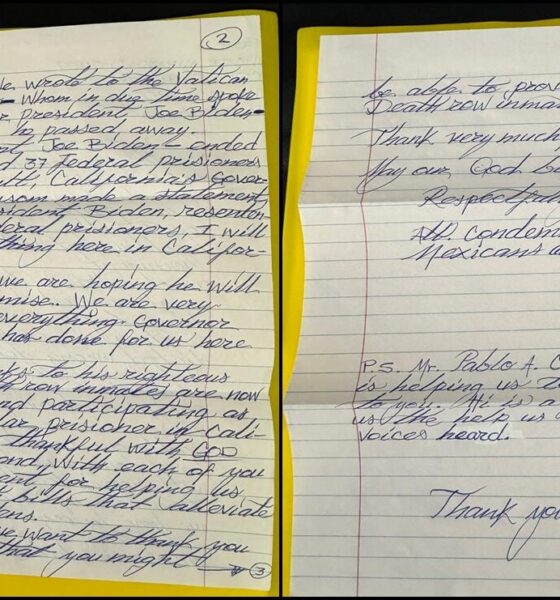 2
we wrote to the Vatican
- Whom in due time spoke
r president Joe Biden-
he passed away.
nt Joe Biden- ended
d 37 federal prisioners
ult, California's Gover-
usom made a statement,
sident Biden, resenten-
deral prisioners, I will
thing here in Califor-
we are hoping he will
omise. We are very
everything Governor
has done for us here
nks to his righteous
th row inmates are now
nd participating as
lar prisioner in Cali-
thankful with God
ond, with each of you
ent for helping us
t bills that alleviate
ans.
we want to thank you
that you might
3
be able to prov
Death row inma
Thank very much
May our God b
Respectfu
All condem
Mexicans a
P.S. Mr. Pablo A. C
is helping us
to you. Hi is a
us the help us
voices heard.
Thank you